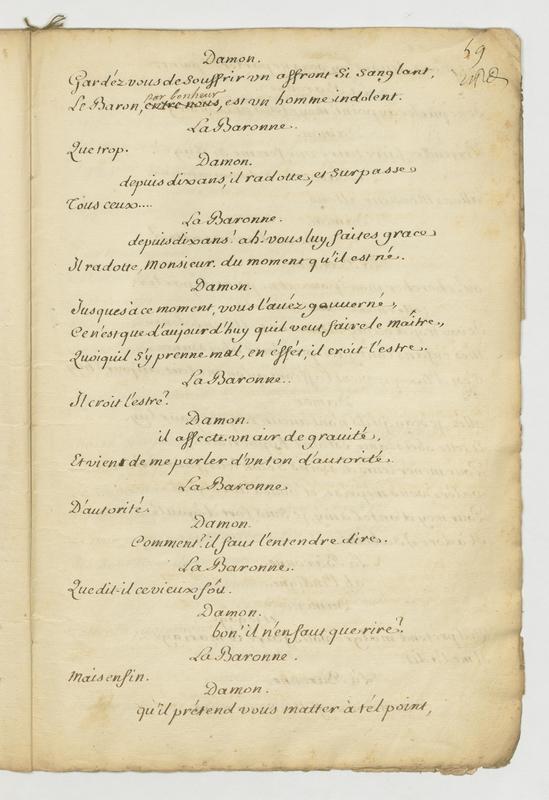 59
Damon.
Gardéz vous de souffrir vn affront si sanglant,
par bonheur
Le Baron, entre nous, est vn homme indolent.
La Baronne.
Que trop.
Damon.
depuis dix ans, il radotte, et surpasse
Tous ceux....
La Baronne.
depuis dix ans! ah! vous luy faites grace
Il radotte, Monsieur, du moment qu'il est né.
Damon.
Jusques à ce moment, vous l'auéz gouuerné,
Ce n'est que d'aujourd'huy qu'il veut faire le maître,
Quoiqu'il s'y prenne mal, en éffét, il croit l'estre.
La Baronne.
Il croit l'estre?
Damon.
il affecte vn air de grauité,
Et vient de me parler d'vn ton d'autorité.
La Baronne
D'autorité.
Damon.
Comment? il faut l'entendre dire.
La Baronne.
Que dit-il ce vieux foû.
Damon.
bon! il n'en faut que rire?
La Baronne.
Mais enfin.
Damon.
qu'il prétend vous matter à tél point,